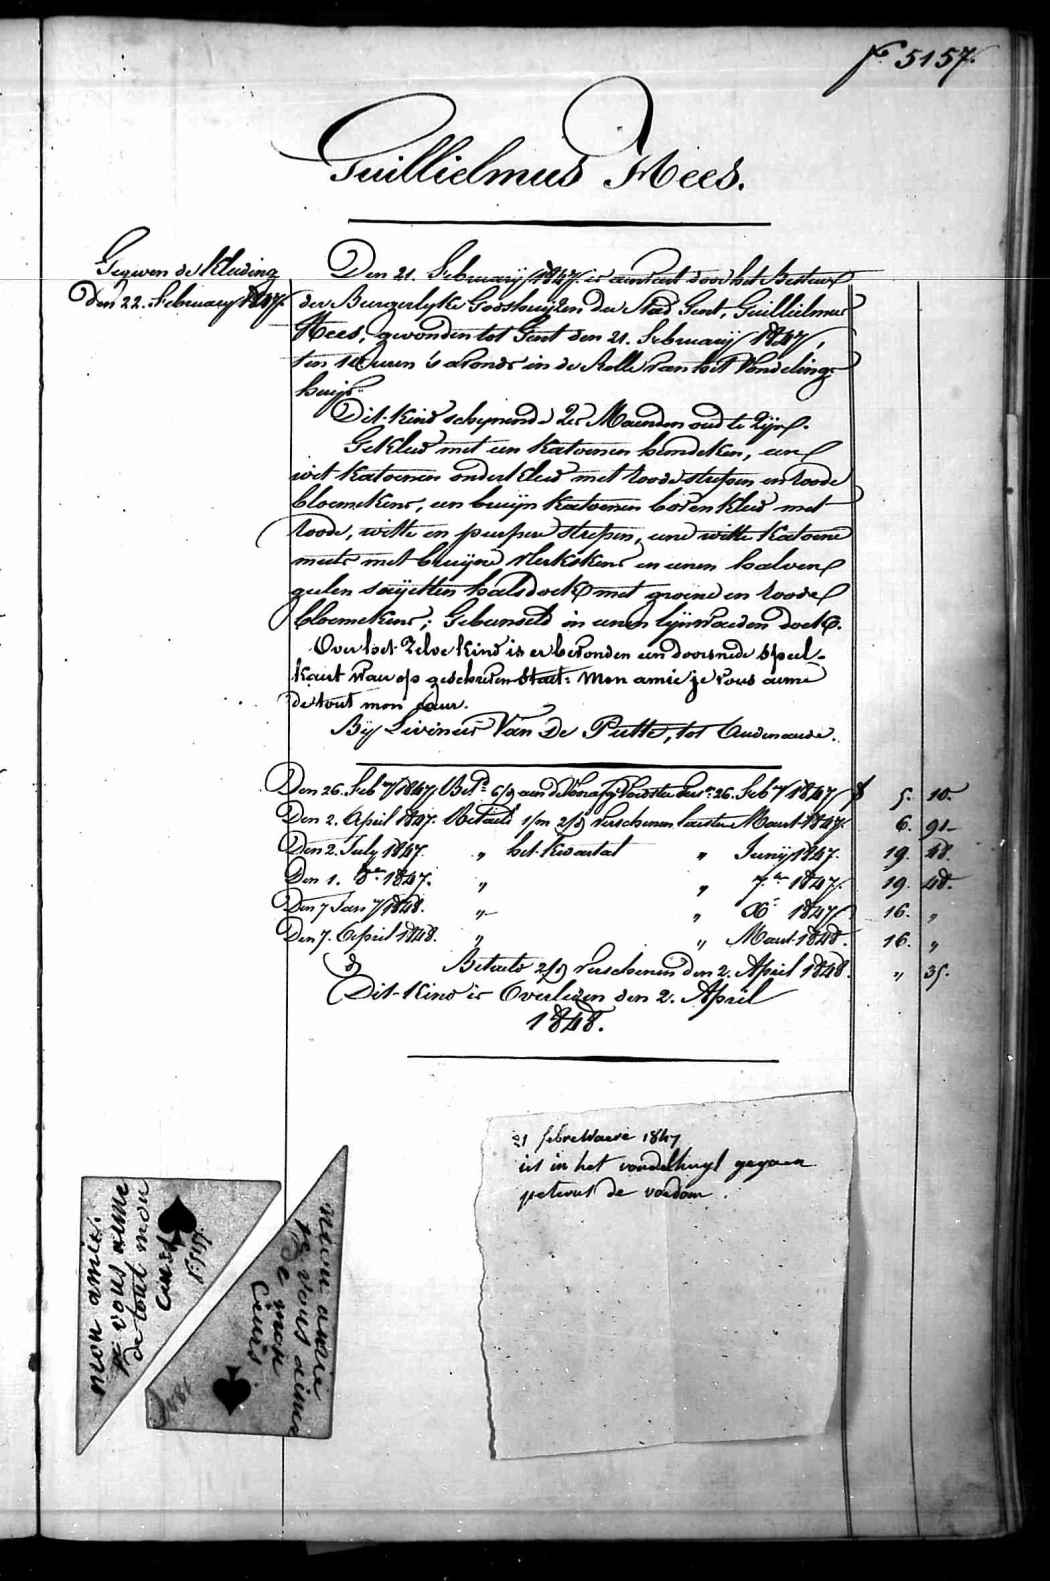 f° 5157.
Guillielmus Hees.
Gegeven de Kleeding
den 22. February 1847.
Den 21. February 1847 is aanveert door het Bestuer
der Burgerlyke Godshuyzen der Stad Gent, Guillielmus
Hees, gevonden tot Gent den 21. February 1847,
ten 10 uren 's avonds in de Rolle van het Vondeling-
huijs.
Dit kind schynende 2 Maenden oud te zyn.
Gekleed met een katoenen hemdeken, een
wit katoenen onderkleed met roode strepen en roode
bloemekens, een bruyn katoenen bovenkleed met
roode, witte en purpere strepen, eene witte katoene
muts met bruyne vlekskens en eenen halven
geelen saijetten halsdoek met groene en roode
bloemekens; Gebunseld in eenen lynwaeden doek.
Over het zelve kind is er bevonden een doorsnede speel-
kaart waer op geschreven staet: Mon amie je vous aime
de tout mon cœur.
By Livinus Van De Putte, tot Audenaerde.
Den 26. Feb.ry 1847 Bet.d 6/d aen de Voorsz. Voedster 26. Feb.ry 1847 f 5. 10.
Den 2. April 1847. Betaeld 1/m 2/d verschenen laesten Maert 1847. 6. 91
Den 2. July 1847. " het kwartael " Juny 1847. 19. 48.
Den 1. 8.er 1847. " " 7.er 1847. 19. 48.
Den 7 Jan.y 1848. " " X.r 1847 16. "
Den 7. April 1848. " " Maert 1848. 16. "
d° Betaeld 2/d verschenen den 2. April 1848. " 35.
Dit kind is Overleden den 2. April
1848.
21 febrewaere 1847
ist in het vondelhuys gegaen
petrus de
mon amie.
je vous aime
de tout mon
Cœur
f° 5157.
mon amie
je vous aime
De mon
Cœur